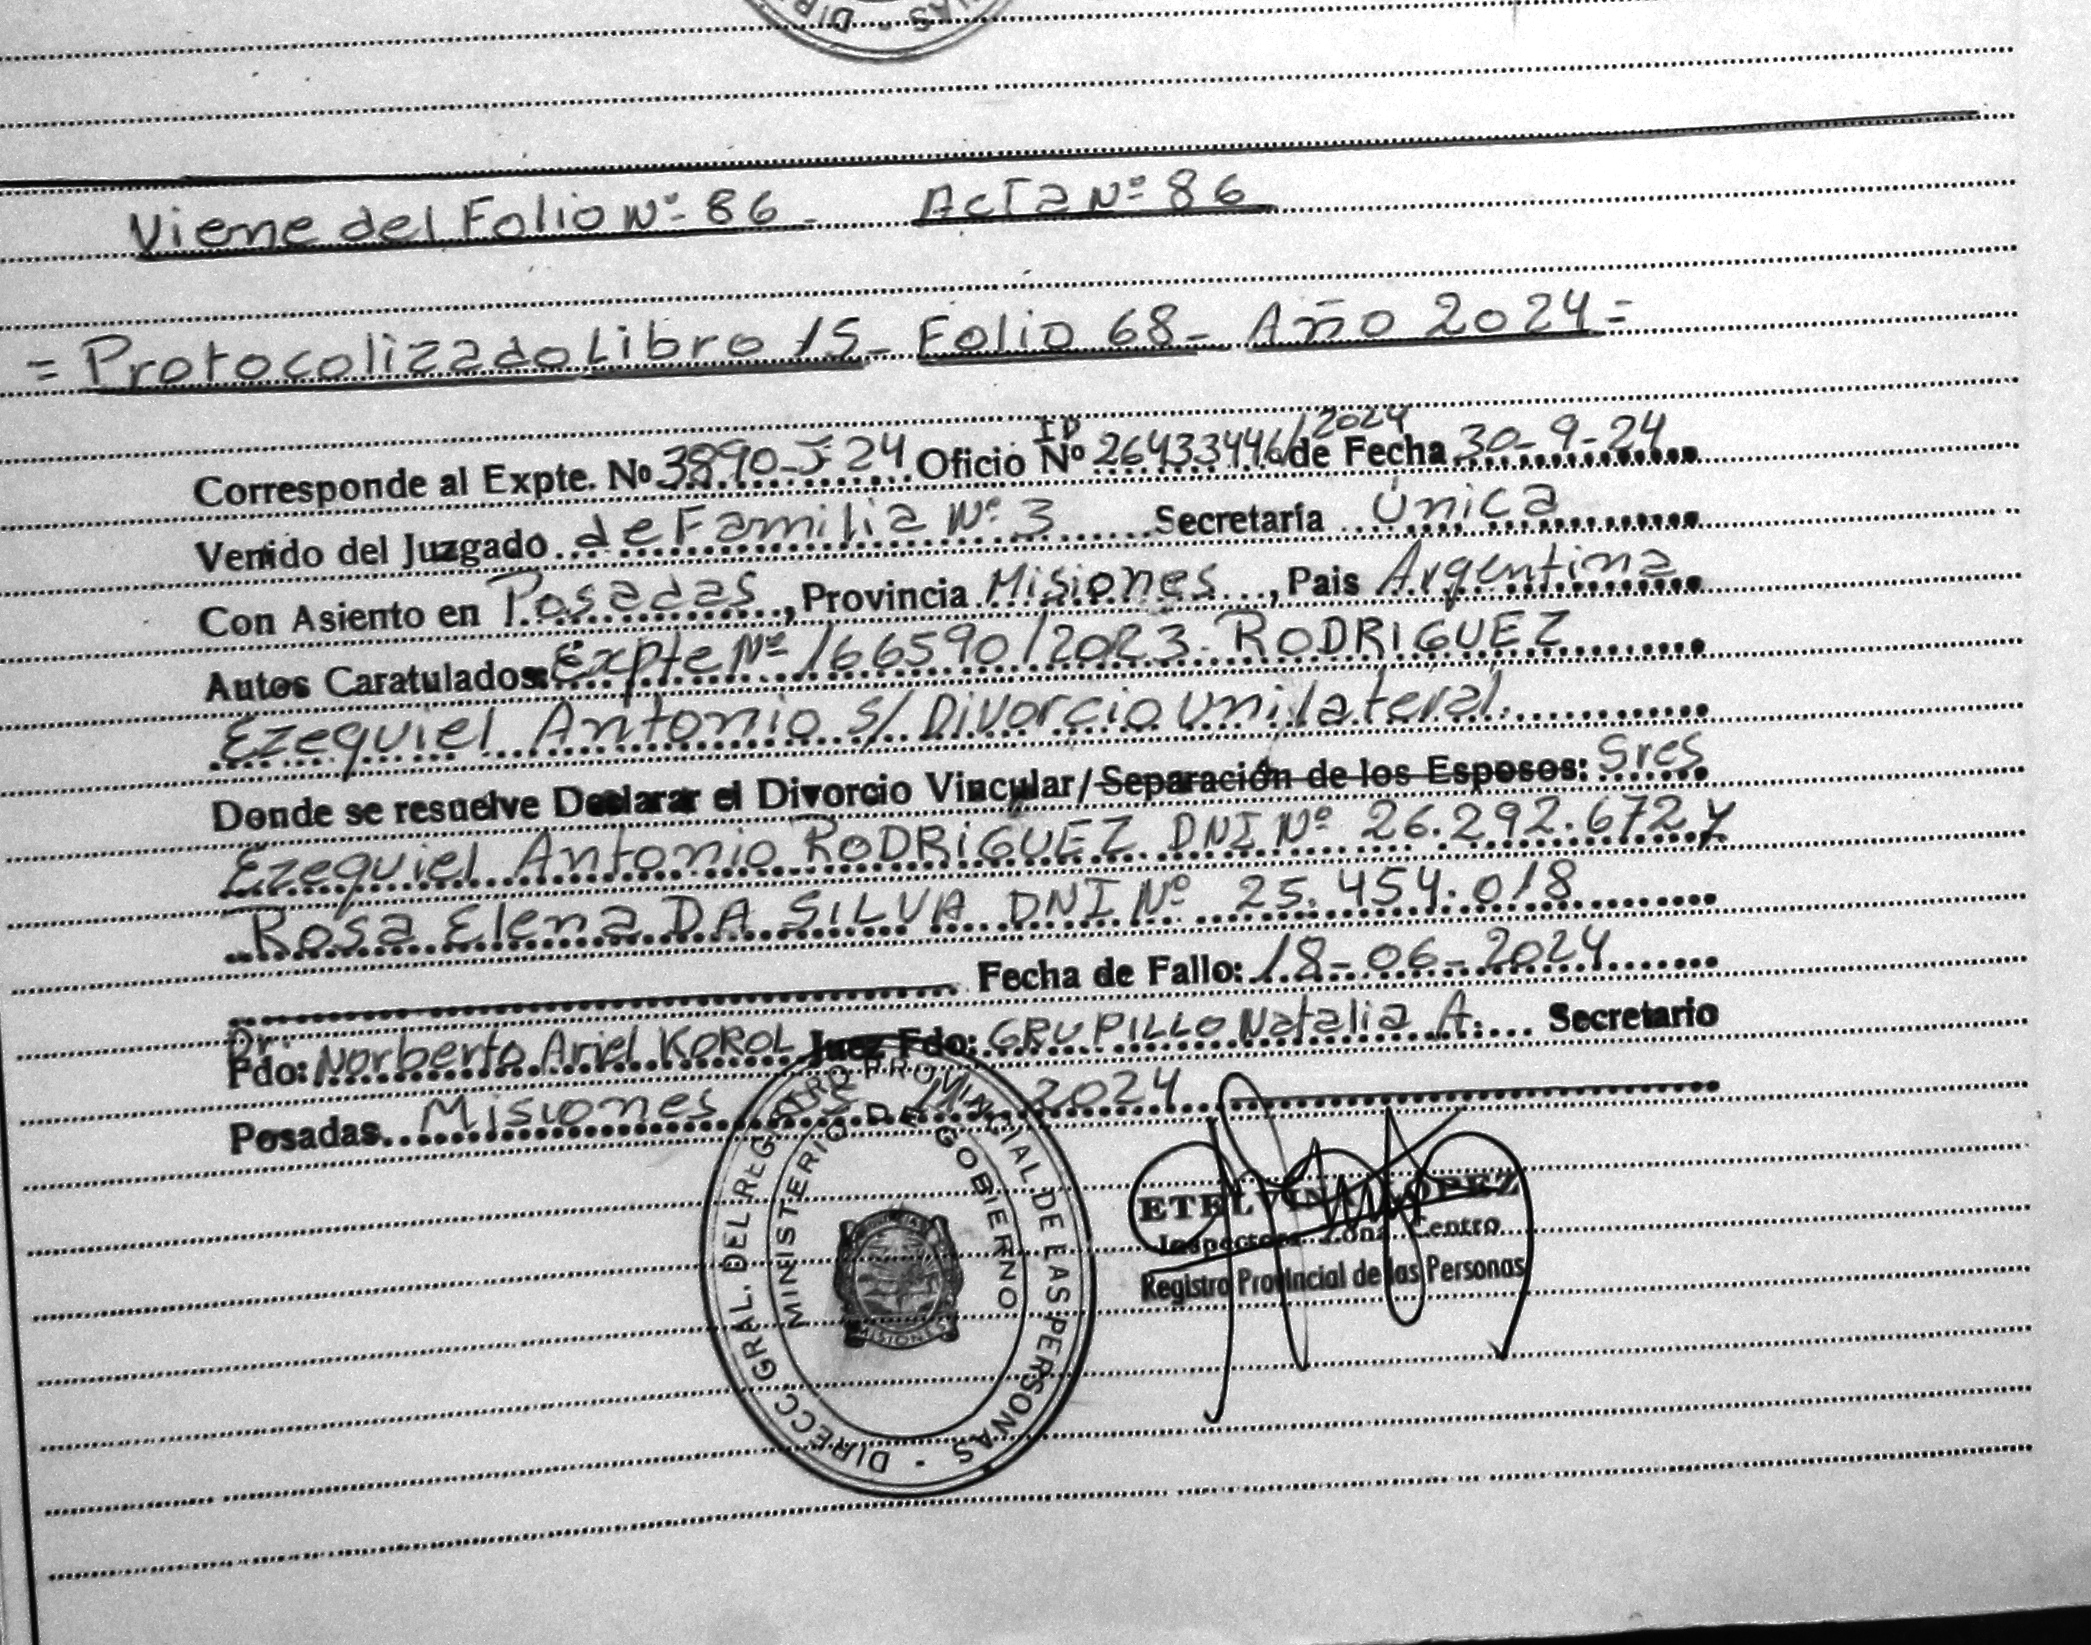 Viene del Folio Nº 86 - Acta Nº 86
= Protocolizado Libro 15 - Folio 68 - Año 2024 =
Corresponde al Expte. Nº 3890-J-24 Oficio ID Nº 26433446/2024 de Fecha 30-9-24
Venido del Juzgado de Familia Nº 3 Secretaría Única
Con Asiento en Posadas, Provincia Misiones, Pais Argentina
Autos Caratulados: Expte Nº 166590/2023. RODRIGUEZ
Ezequiel Antonio s/ Divorcio unilateral.
Donde se resuelve Declarar el Divorcio Vincular/Separación de los Esposos: Sres
Ezequiel Antonio RODRIGUEZ DNI Nº 26.292.672 y
Rosa Elena DA SILVA DNI Nº 25.454.018
Fecha de Fallo: 18-06-2024
Fdo: Dr. Norberto Ariel KOROL Juez Fdo: GRUPILLO Natalia A. Secretario
Posadas. Misiones 11 2024
DIRECC GRAL. DEL REGISTRO PROVINCIAL DE LAS PERSONAS -
MINISTERIO DE GOBIERNO
MISIONES
ETELVINA LOPEZ
Inspectora Zona Centro
Registro Provincial de las Personas